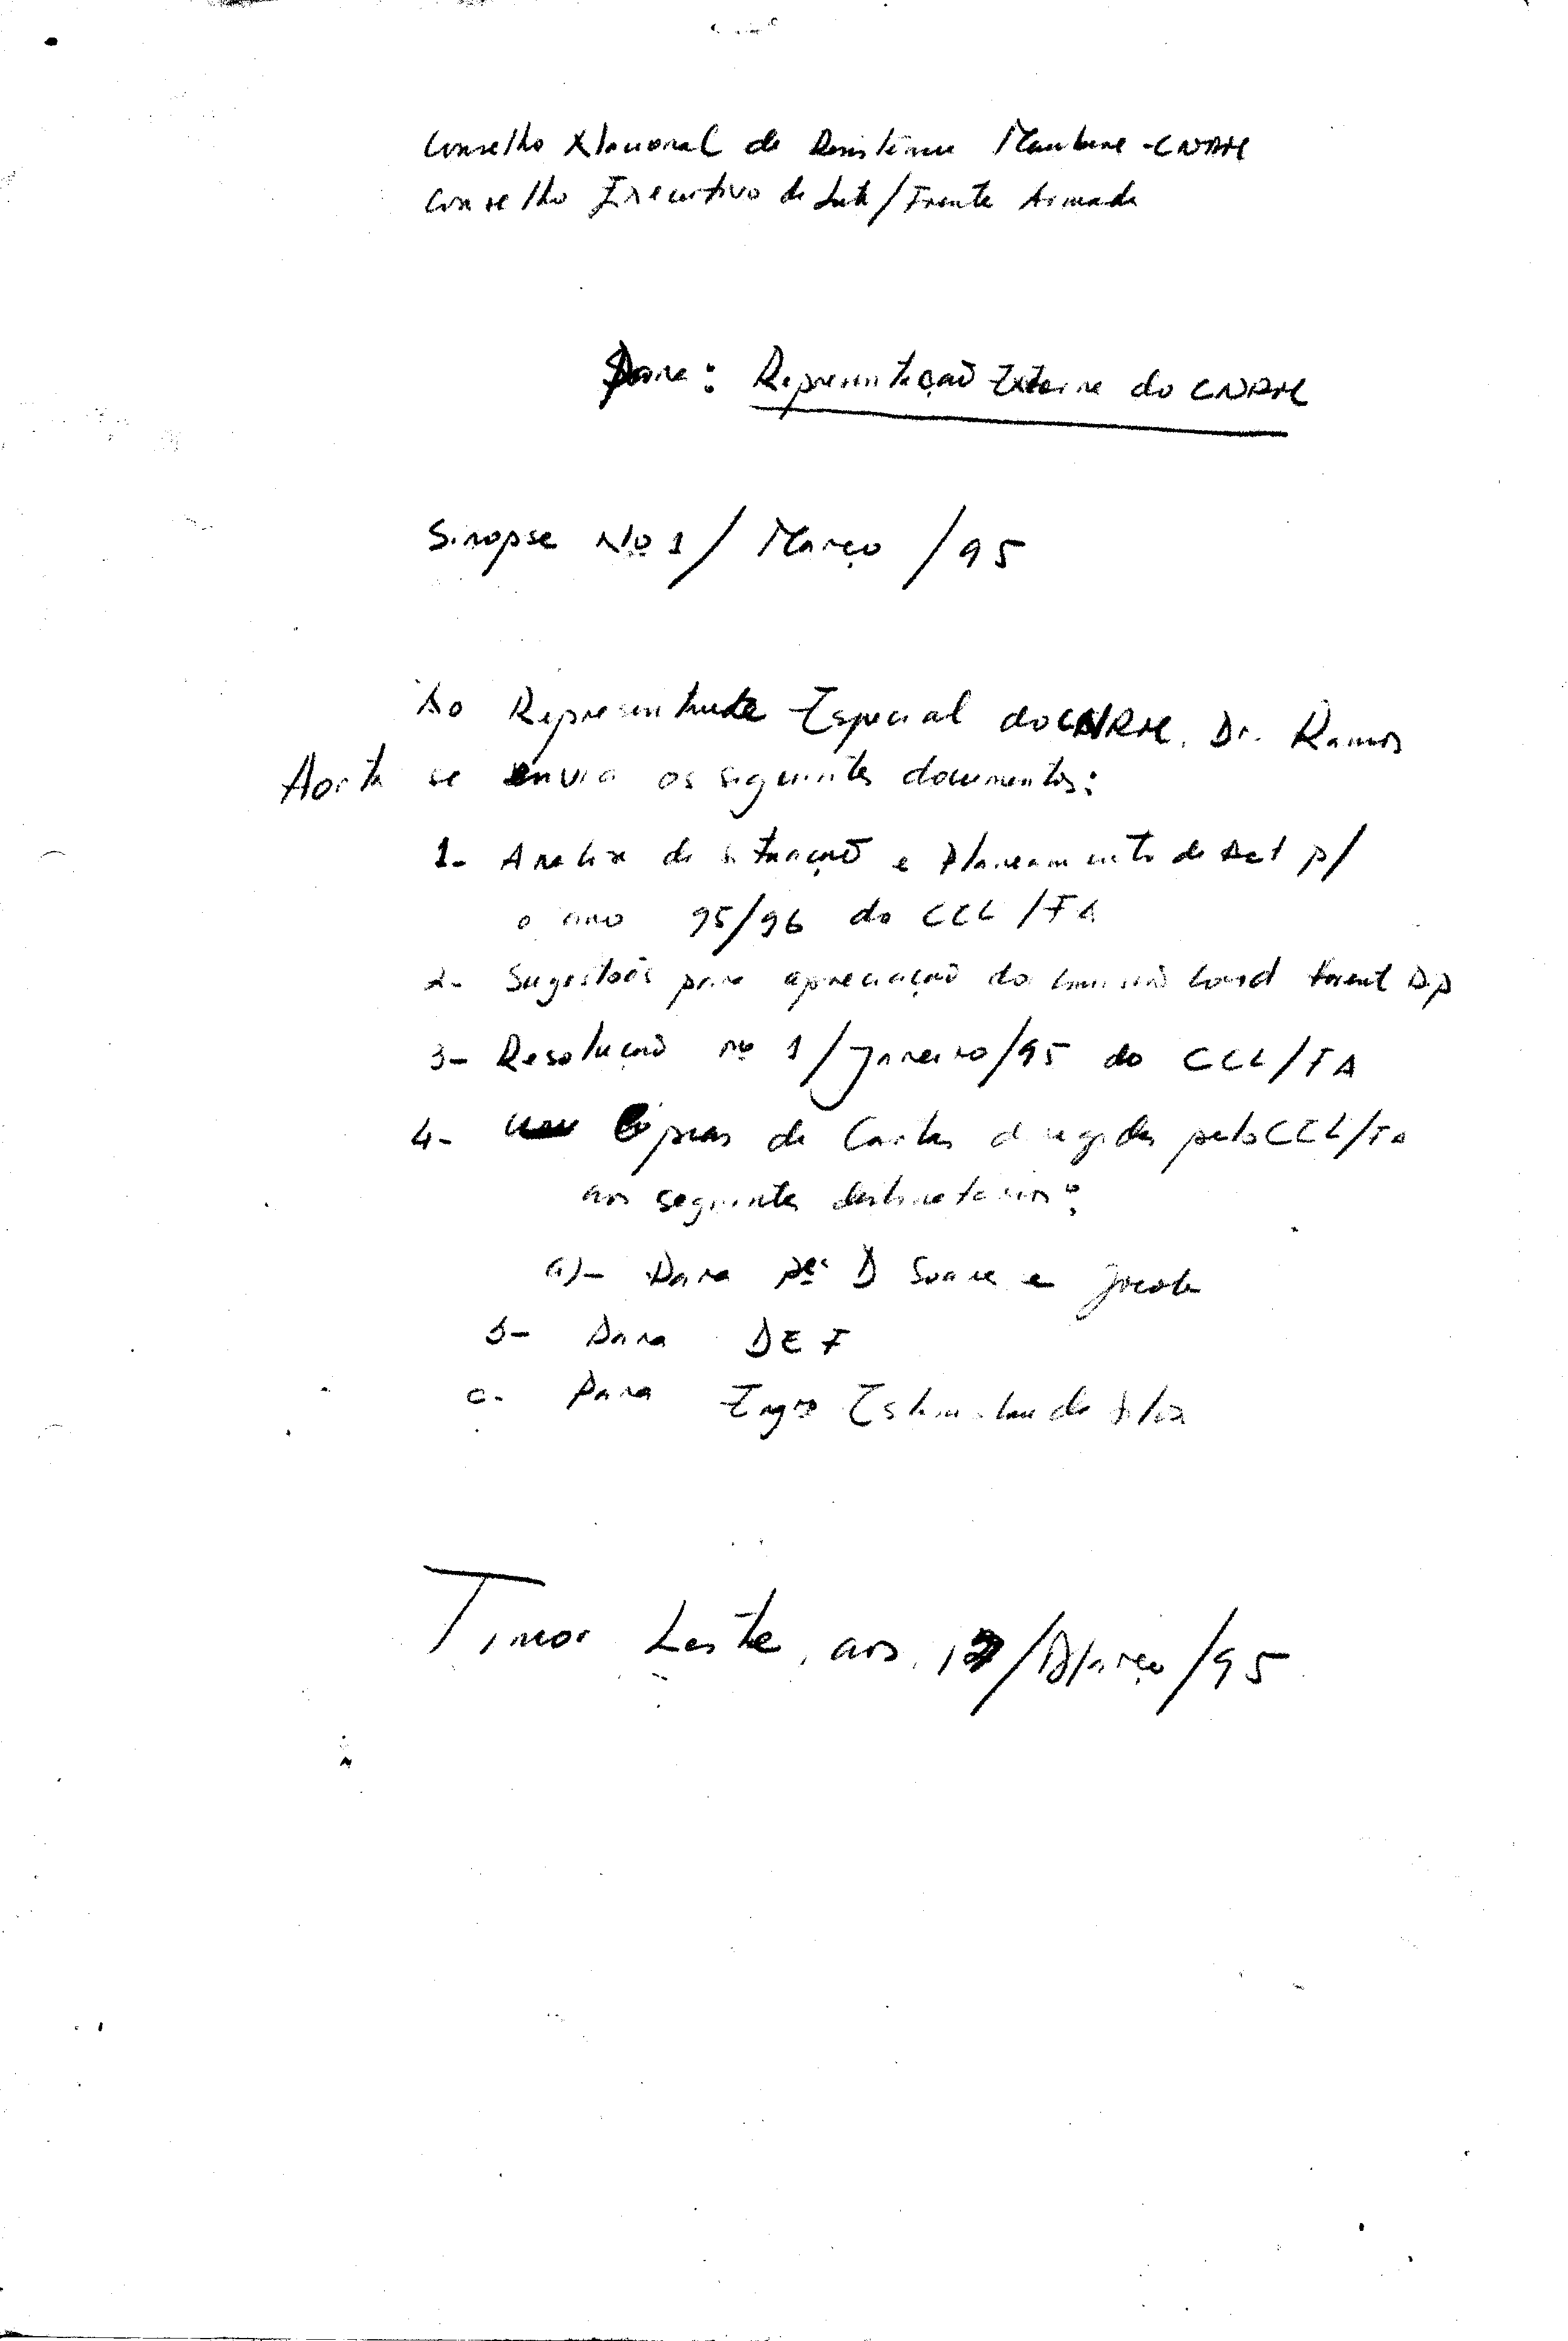 Conselho Nacional da Resistência Maubere - CNRM
Conselho Executivo da Luta / Frente Armada
Para: Representação Externa do CNRM
Sinopse Nº 1 / Março / 95
Ao Representante Especial do CNRM, Dr. Ramos
Horta se envia os seguintes documentos:
1- Analise da situação e Planeamento de Act p/
o ano 95/96 do CEL/FA
2- Sugestões para apreciação da Comissão Coord
3- Resolução nº 1/Janeiro/95 do CEL/FA
4- Cópias de Cartas dirigidas pelo CEL/FA
aos seguintes destinatarios:
a)- Para
b- Para DEF
c- Para Engº da Silva
Timor Leste, aos /Março/95